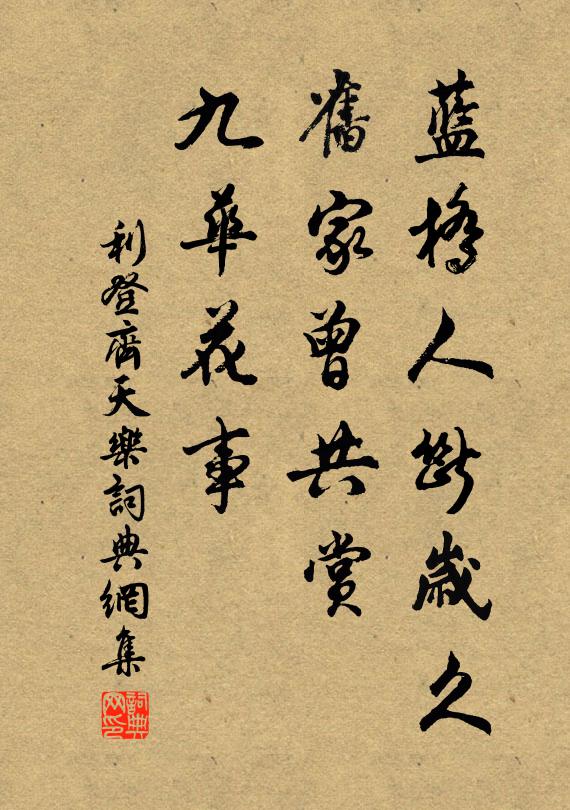 藍橋人斷歲久
舊家曾共賞
九華花事
利登齊天樂詞典網集
詞典网印